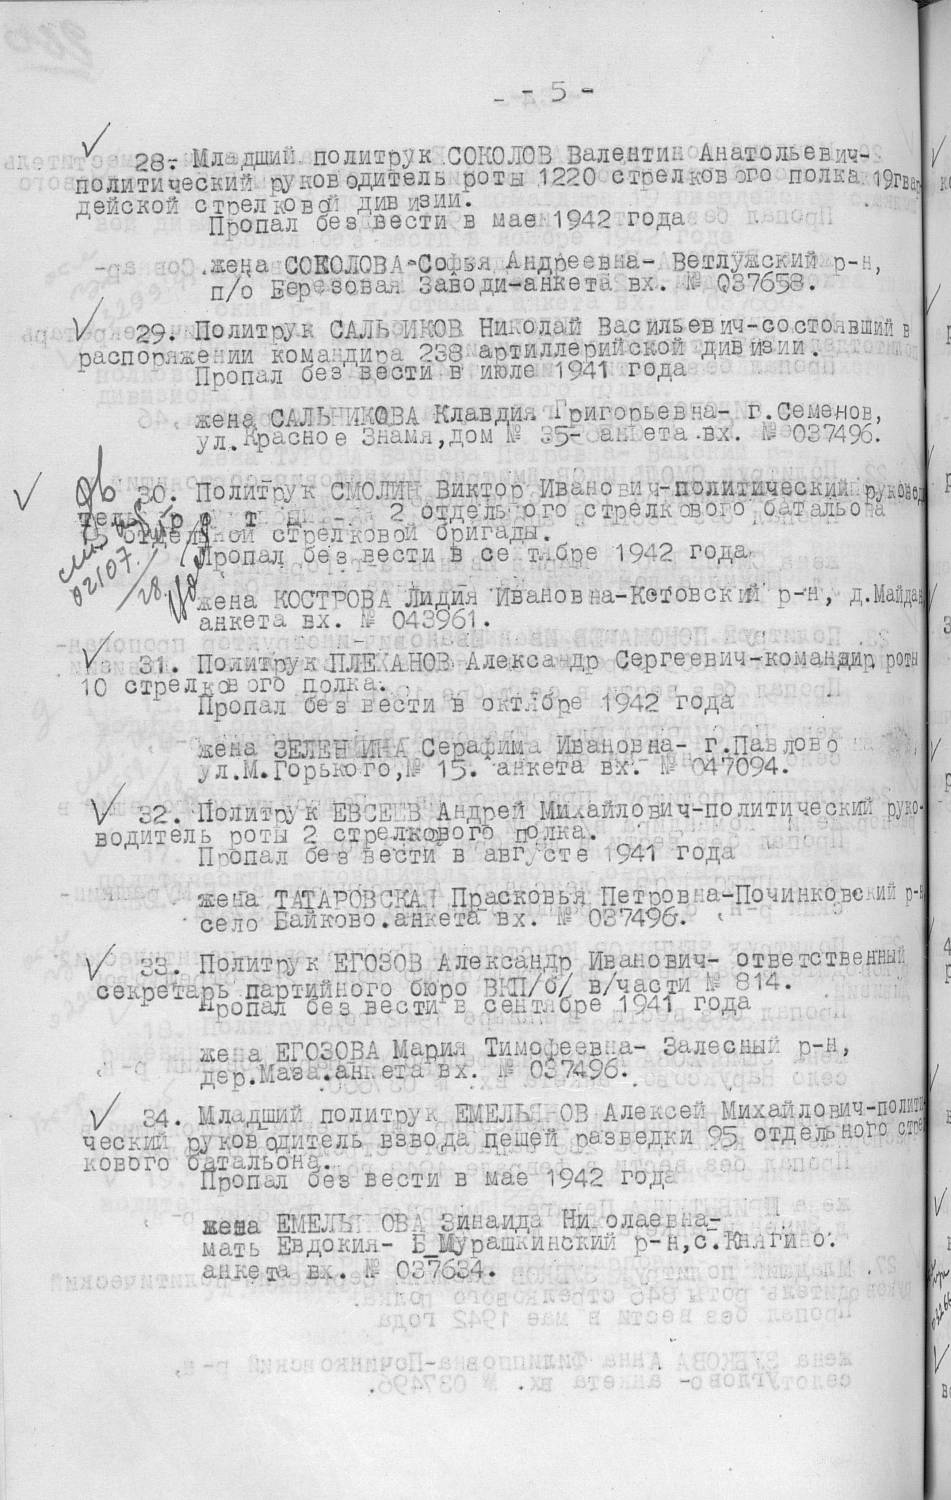 - 5 -
28. Младший политрук СОКОЛОВ Валентин Анатольевич-
политический руководитель роты 1220 стрелкового полка 19гвар
дейской стрелковой дивизии.
Пропал без вести в мае 1942 года
жена СОКОЛОВА Софья Андреевна- Ветлужский р-н,
п/о Березовая Заводи-анкета вх. № 037658.
29. Политрук САЛЬНИКОВ Николай Васильевич-состоявший в
распоряжении командира 238 артиллерийской дивизии.
Пропал без вести в июле 1941 года
жена САЛЬНИКОВА Клавдия Григорьевна- г.Семенов,
ул.Красное Знамя,дом № 35- анкета вх. № 037496.
30. Политрук СМОЛИН Виктор Иванович-политический руковод
2 отдельного стрелкового батальона
отдельной стрелковой бригады.
Пропал без вести в сентябре 1942 года
02107
28
жена КОСТРОВА Лидия Ивановна-Кстовский р-н, д.Майдан
анкета вх. № 043961.
31. Политрук ПЛЕХАНОВ Александр Сергеевич-командир роты
10 стрелкового полка.
Пропал без вести в октябре 1942 года
жена ЗЕЛЕНЦИНА Серафима Ивановна- г.Павлово
ул.М.Горького,№ 15. анкета вх. № 047094.
32. Политрук ЕВСЕЕВ Андрей Михайлович-политический руко-
водитель роты 2 стрелкового полка.
Пропал без вести в августе 1941 года
жена ТАТАРОВСКАЯ Прасковья Петровна-Починковский р-н
село Байково.анкета вх. № 037496.
33. Политрук ЕГОЗОВ Александр Иванович- ответственный
секретарь партийного бюро ВКП/б/ в/части № 814.
Пропал без вести в сентябре 1941 года
жена ЕГОЗОВА Мария Тимофеевна- Залесный р-н,
дер.Маза.анкета вх. № 037496.
34. Младший политрук ЕМЕЛЬЯНОВ Алексей Михайлович-полити
ческий руководитель взвода пешей разведки 95 отдельного стре
кового батальона.
Пропал без вести в мае 1942 года
жена ЕМЕЛЬЯНОВА Зинаида Николаевна-
мать Евдокия- Б_Мурашкинский р-н,с.Княгино.
анкета вх. № 037634.